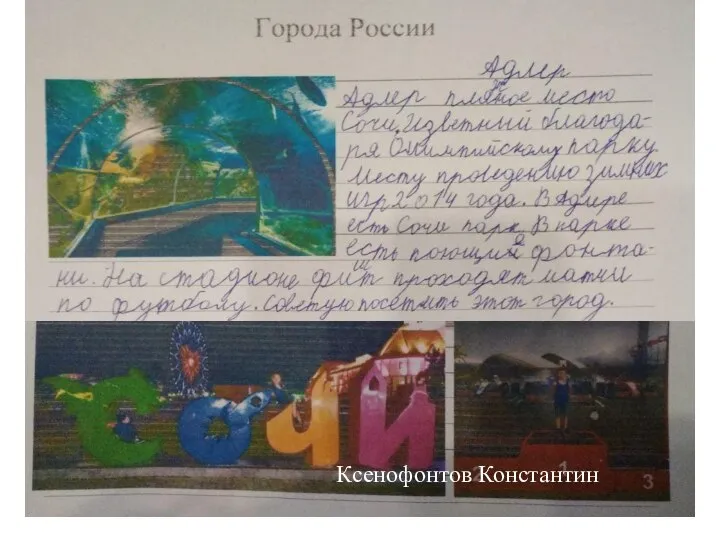 Города России
Адлер
Адлер пляжное место
Сочи, изветный благода-
ря Олимпийскому парку
месту проведению зимних
игр 2014 года. В Адлере
есть Сочи парк. В парке
есть поющие фонта-
ни. На стадионе фишт проходят матчи
по футболу. Советую посетить этот город.
СОЧИ
2 1 3
Ксенофонтов Константин